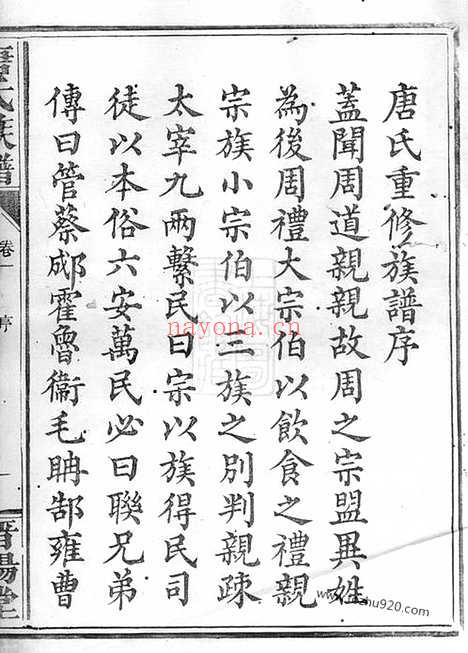 唐氏重修族譜序
蓋聞周道親親故周之宗盟異姓
為後周禮大宗伯以飲食之禮親
宗族小宗伯以三族之別判親疎
太宰九兩繫民曰宗以族得民司
徒以本俗六安萬民必曰聯兄弟
傳曰管蔡郕霍魯衞毛聃郜雍曹
唐氏族譜
卷一
序
一
晋陽堂
nayona.cn
zhu920.com